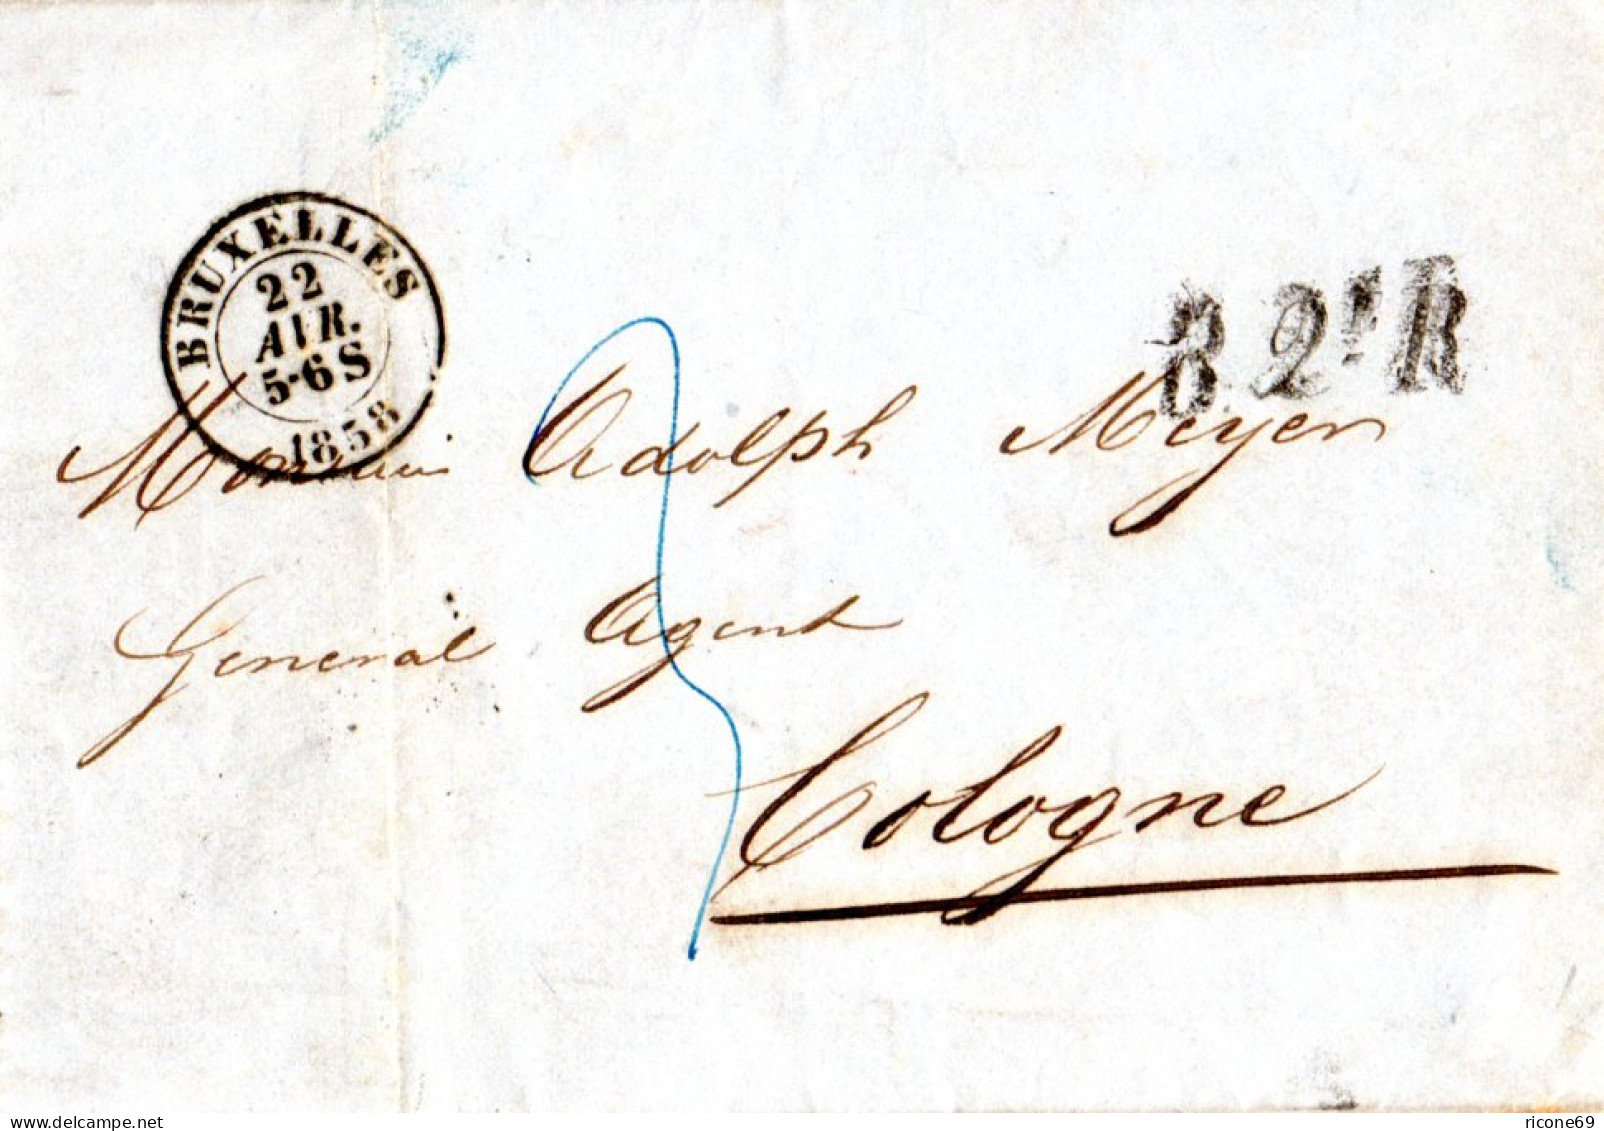 BRUXELLES
22
AVR.
5-6 S
1858
B. 2E R
Monsieur Adolph Meyer
General Agent
Cologne
delcampe.net
ricone69